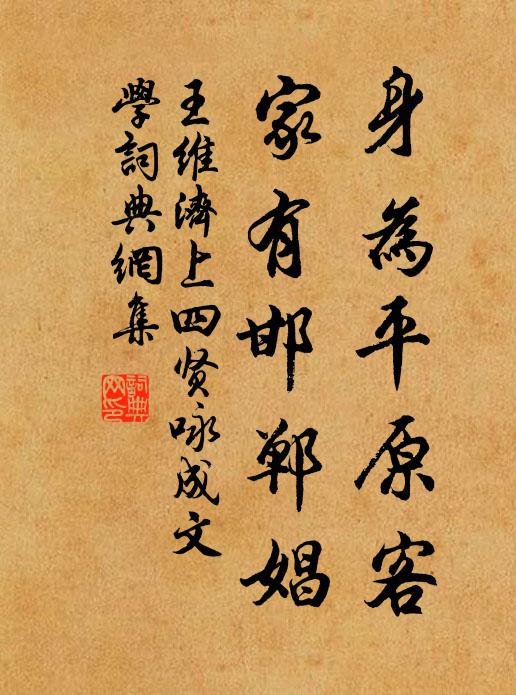 身為平原客
家有邯鄲娼
王維濟上四贤咏成文
學詞典網集
詞典
网印